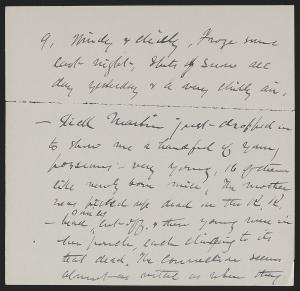 9, Windy & chilly, Froze some
last night, Spits of snow all
day yesterday & a very chilly air,
— Dick Martin just dropped in
to show me a handful of young
possums – very young, 16 of them
like newly born mice, The mother
was picked up dead in the R. R.
– head cut off, & these young were in
her pouch, each clinging to its
teat dead, The connection seems
almost as vital as when they